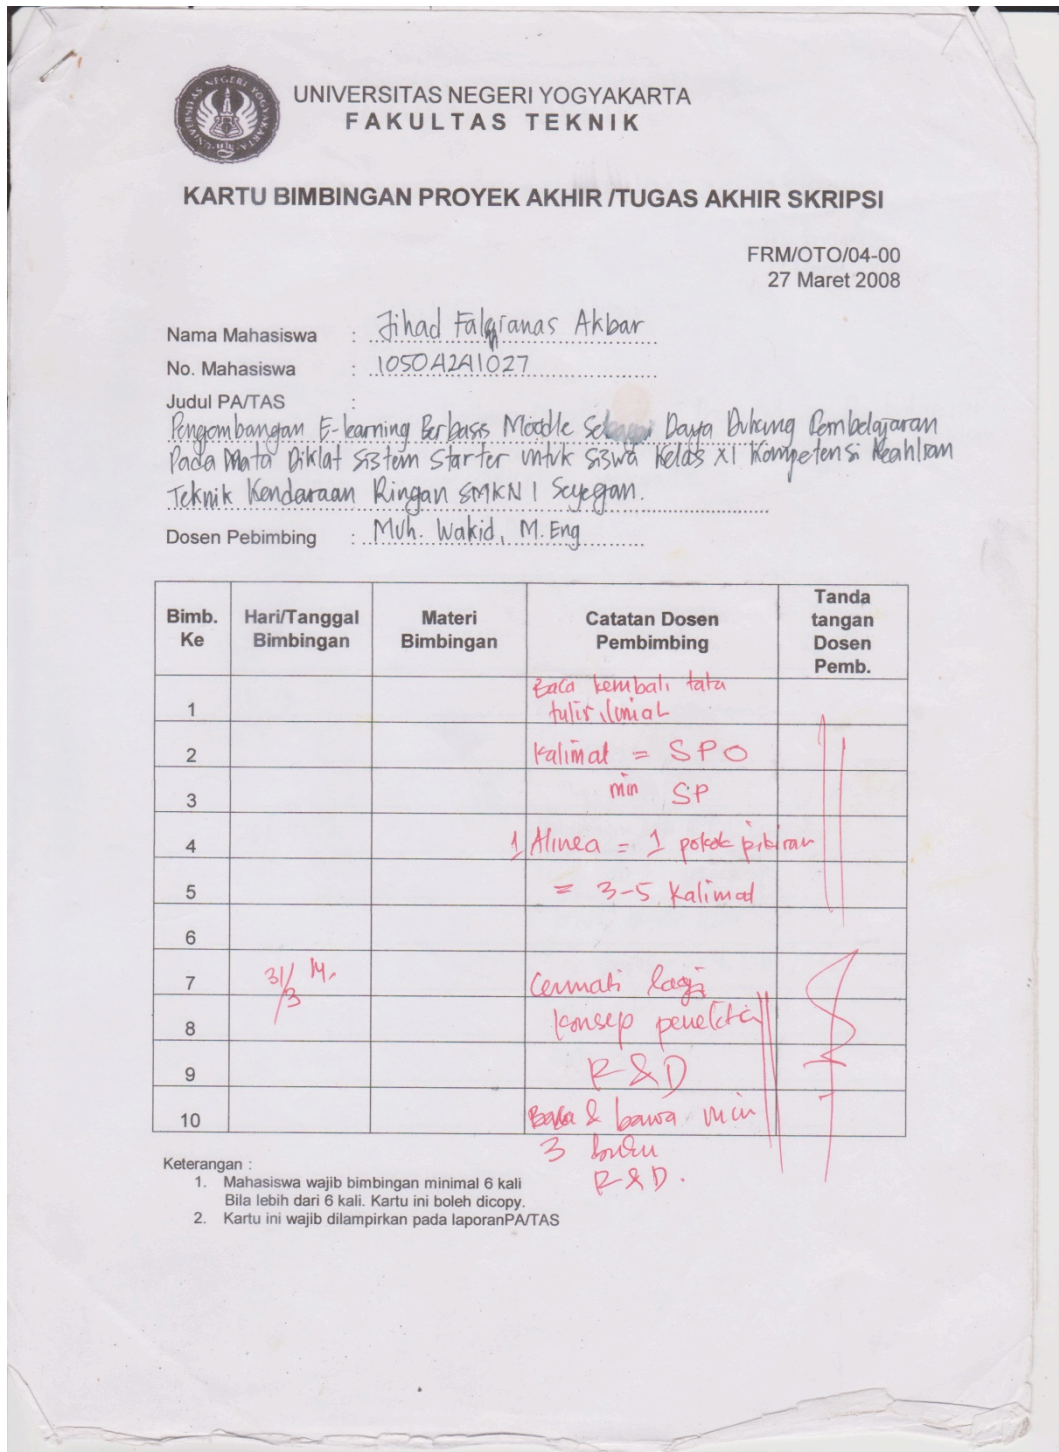 UNIVERSITAS NEGERI YOGYAKARTA
UNIVERSITAS NEGERI YOGYAKARTA
FAKULTAS TEKNIK
KARTU BIMBINGAN PROYEK AKHIR /TUGAS AKHIR SKRIPSI
FRM/OTO/04-00
27 Maret 2008
Nama Mahasiswa : Jihad Akbar
No. Mahasiswa : 10504241027
Judul PA/TAS :
Pengembangan E-learning Berbasis Moodle Sebagai Daya Dukung Pembelajaran
Pada Mata Diklat Sistem Starter untuk Siswa Kelas XI Kompetensi Keahlian
Teknik Kendaraan Ringan SMKN 1 Seyegan.
Dosen Pebimbing : Muh. Wakid, M.Eng
Bimb. Ke Hari/Tanggal Bimbingan Materi Bimbingan Catatan Dosen Pembimbing Tanda tangan Dosen Pemb.
1 Baca kembali tata
tulis ilmiah
2 Kalimat = SPO
3 min SP
4 1 Alinea = 1 pokok pikiran
5 = 3-5 Kalimat
6
7 31/3 14. Cermati lagi
8 konsep penelitian
9 R&D
10 Baca & bawa min
3 buku
R&D.
Keterangan :
1. Mahasiswa wajib bimbingan minimal 6 kali
Bila lebih dari 6 kali. Kartu ini boleh dicopy.
2. Kartu ini wajib dilampirkan pada laporanPA/TAS